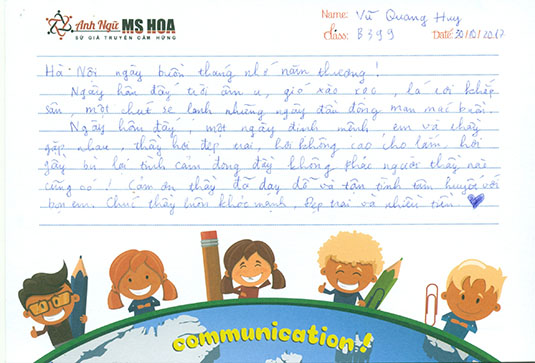 Anh Ngữ MS HOA
SỨ GIẢ TRUYỀN CẢM HỨNG
Name: Vũ Quang Huy
Class: B399
Date: 30/10/2017
Hà Nội ngày buồn tháng nhớ năm thương!
Ngày hôm đấy trời âm u, gió xào xạc, lá rơi khắp
sân, một chút se lạnh những ngày đầu đông man mác buồn.
Ngày hôm đấy, một ngày định mệnh em và thầy
gặp nhau, thầy hơi đẹp trai, hơi không cao cho lắm, hơi
gầy bù lại tình cảm dong đầy không phải người thầy nào
cũng có! Cảm ơn thầy đã dạy dỗ và tận tình tâm huyết với
bọn em. Chúc thầy luôn khỏe mạnh, đẹp trai và nhiều tiền.
communication!